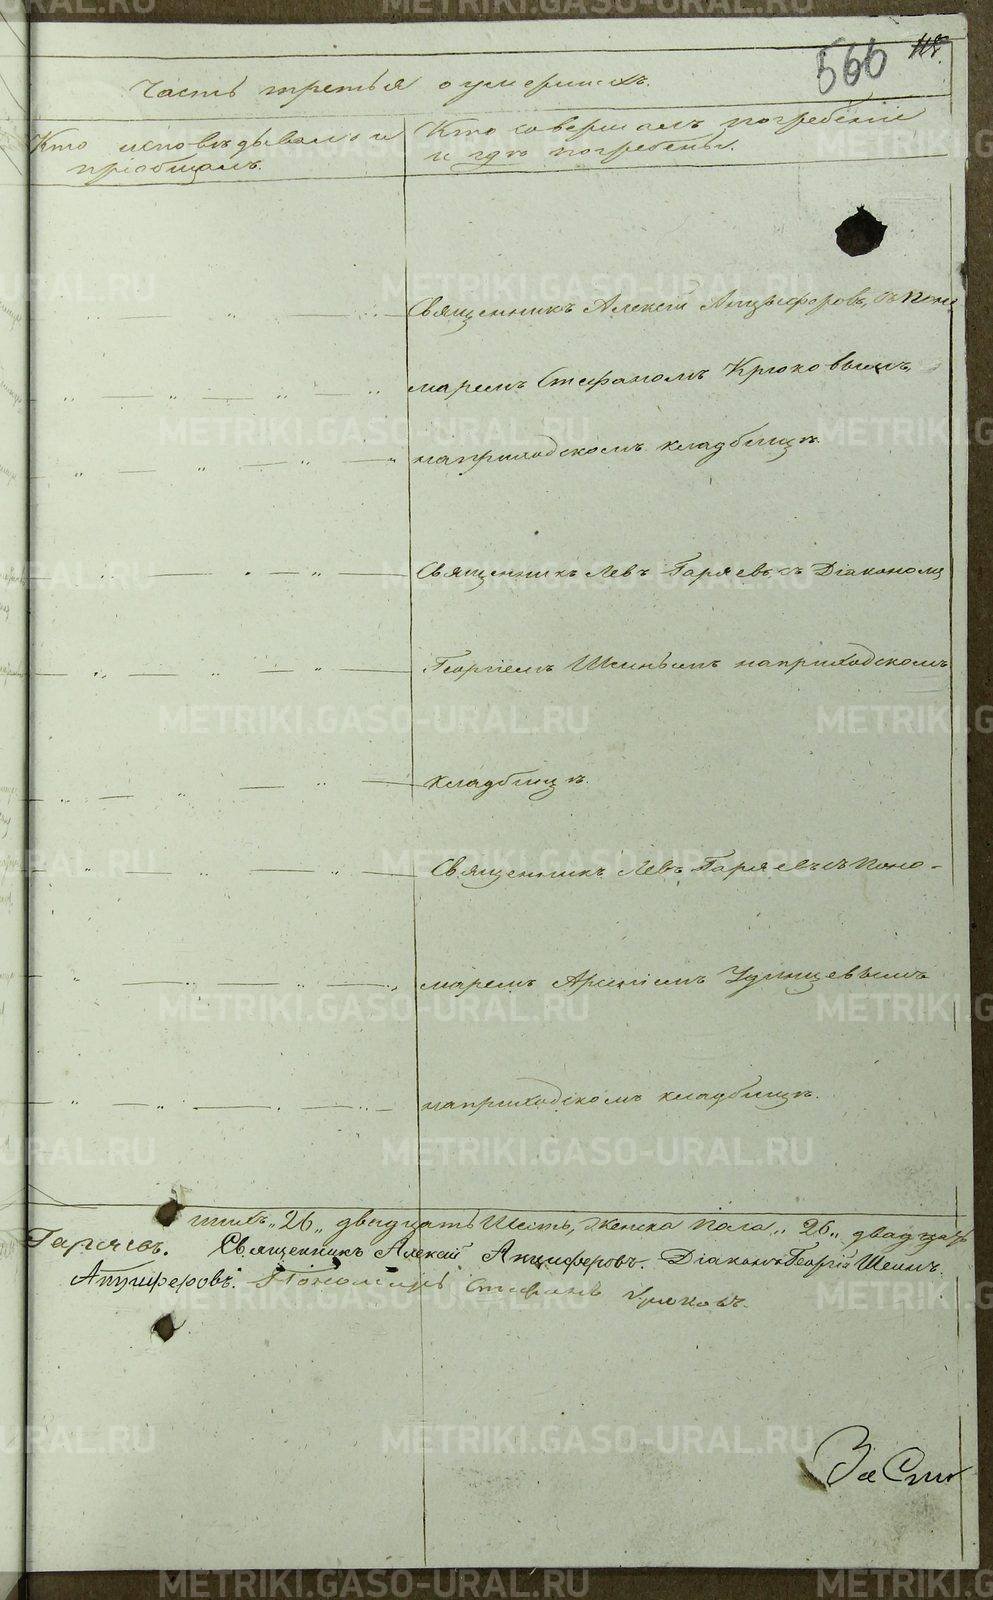 566
Часть третья о умершихъ.
Кто исповѣдывалъ и
пріобщалъ.
Кто совершалъ погребеніе
и гдѣ погребены.
Священникъ Алексѣй Анцыферовъ, съ Поно
маремъ Стефаномъ Крюковымъ,
наприходскомъ кладбищѣ.
Священникъ Левъ Гаряевъ съ Діакономъ
Георгіемъ Шеинымъ наприходскомъ
кладбищѣ.
Священникъ Левъ Гаряевъ съ Поно-
маремъ Арсеніемъ
наприходскомъ кладбищѣ.
"26" двадцать Шесть, Женска Пола "26" двадцать
Гаряевъ. Священникъ Алексѣй Анциферовъ. Діаконъ Георгій Шеинъ.
Анциферовъ. Пономарь Стефанъ Крюковъ.
METRIKI.GASO-URAL.RU